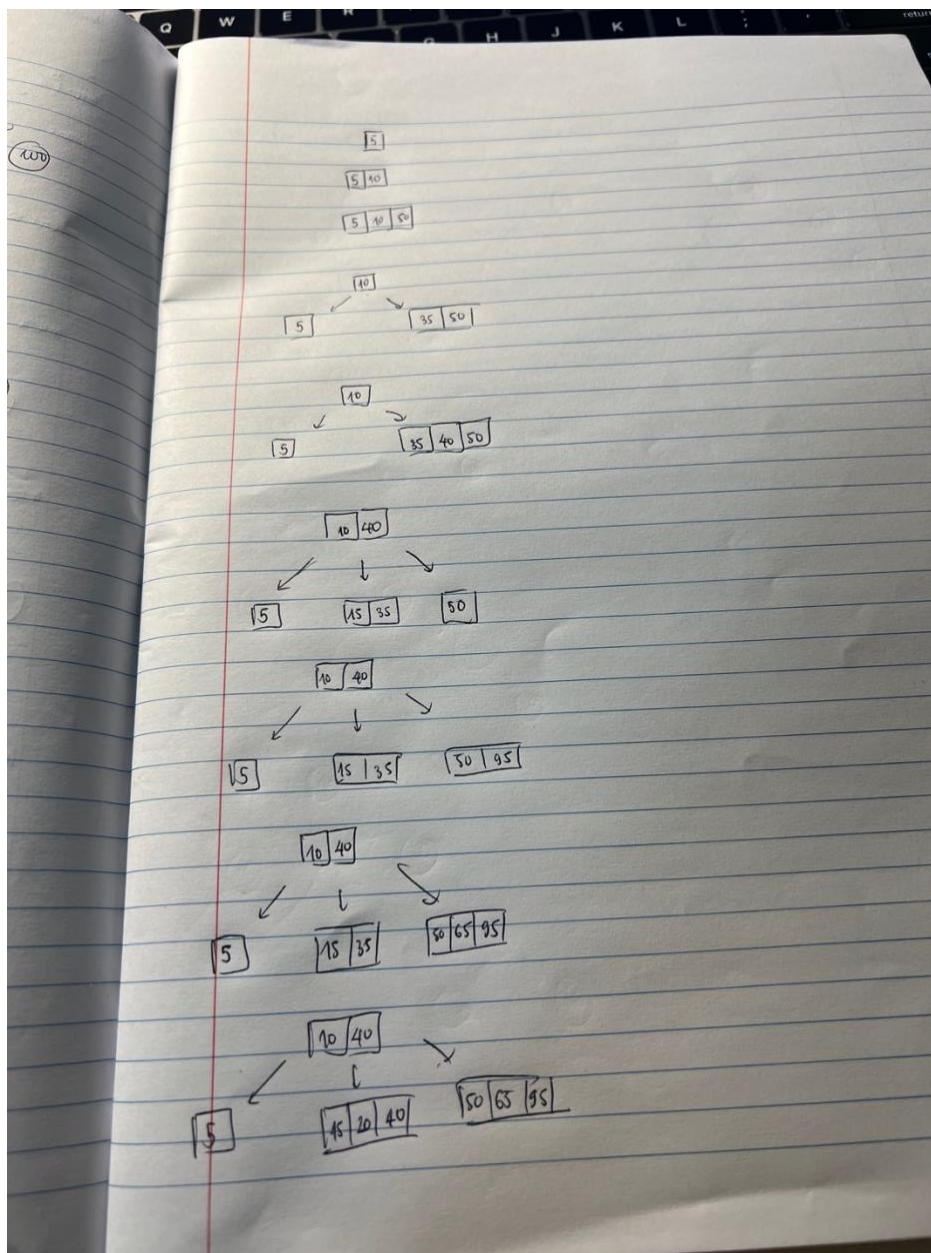 Q W E R
G H J K L ; return
100
5
5 10
5 10 50
10
5 35 50
10
5 35 40 50
10 40
5 15 35 50
10 40
5 15 35 50 95
10 40
5 15 35 50 65 95
10 40
5 15 20 40 50 65 95